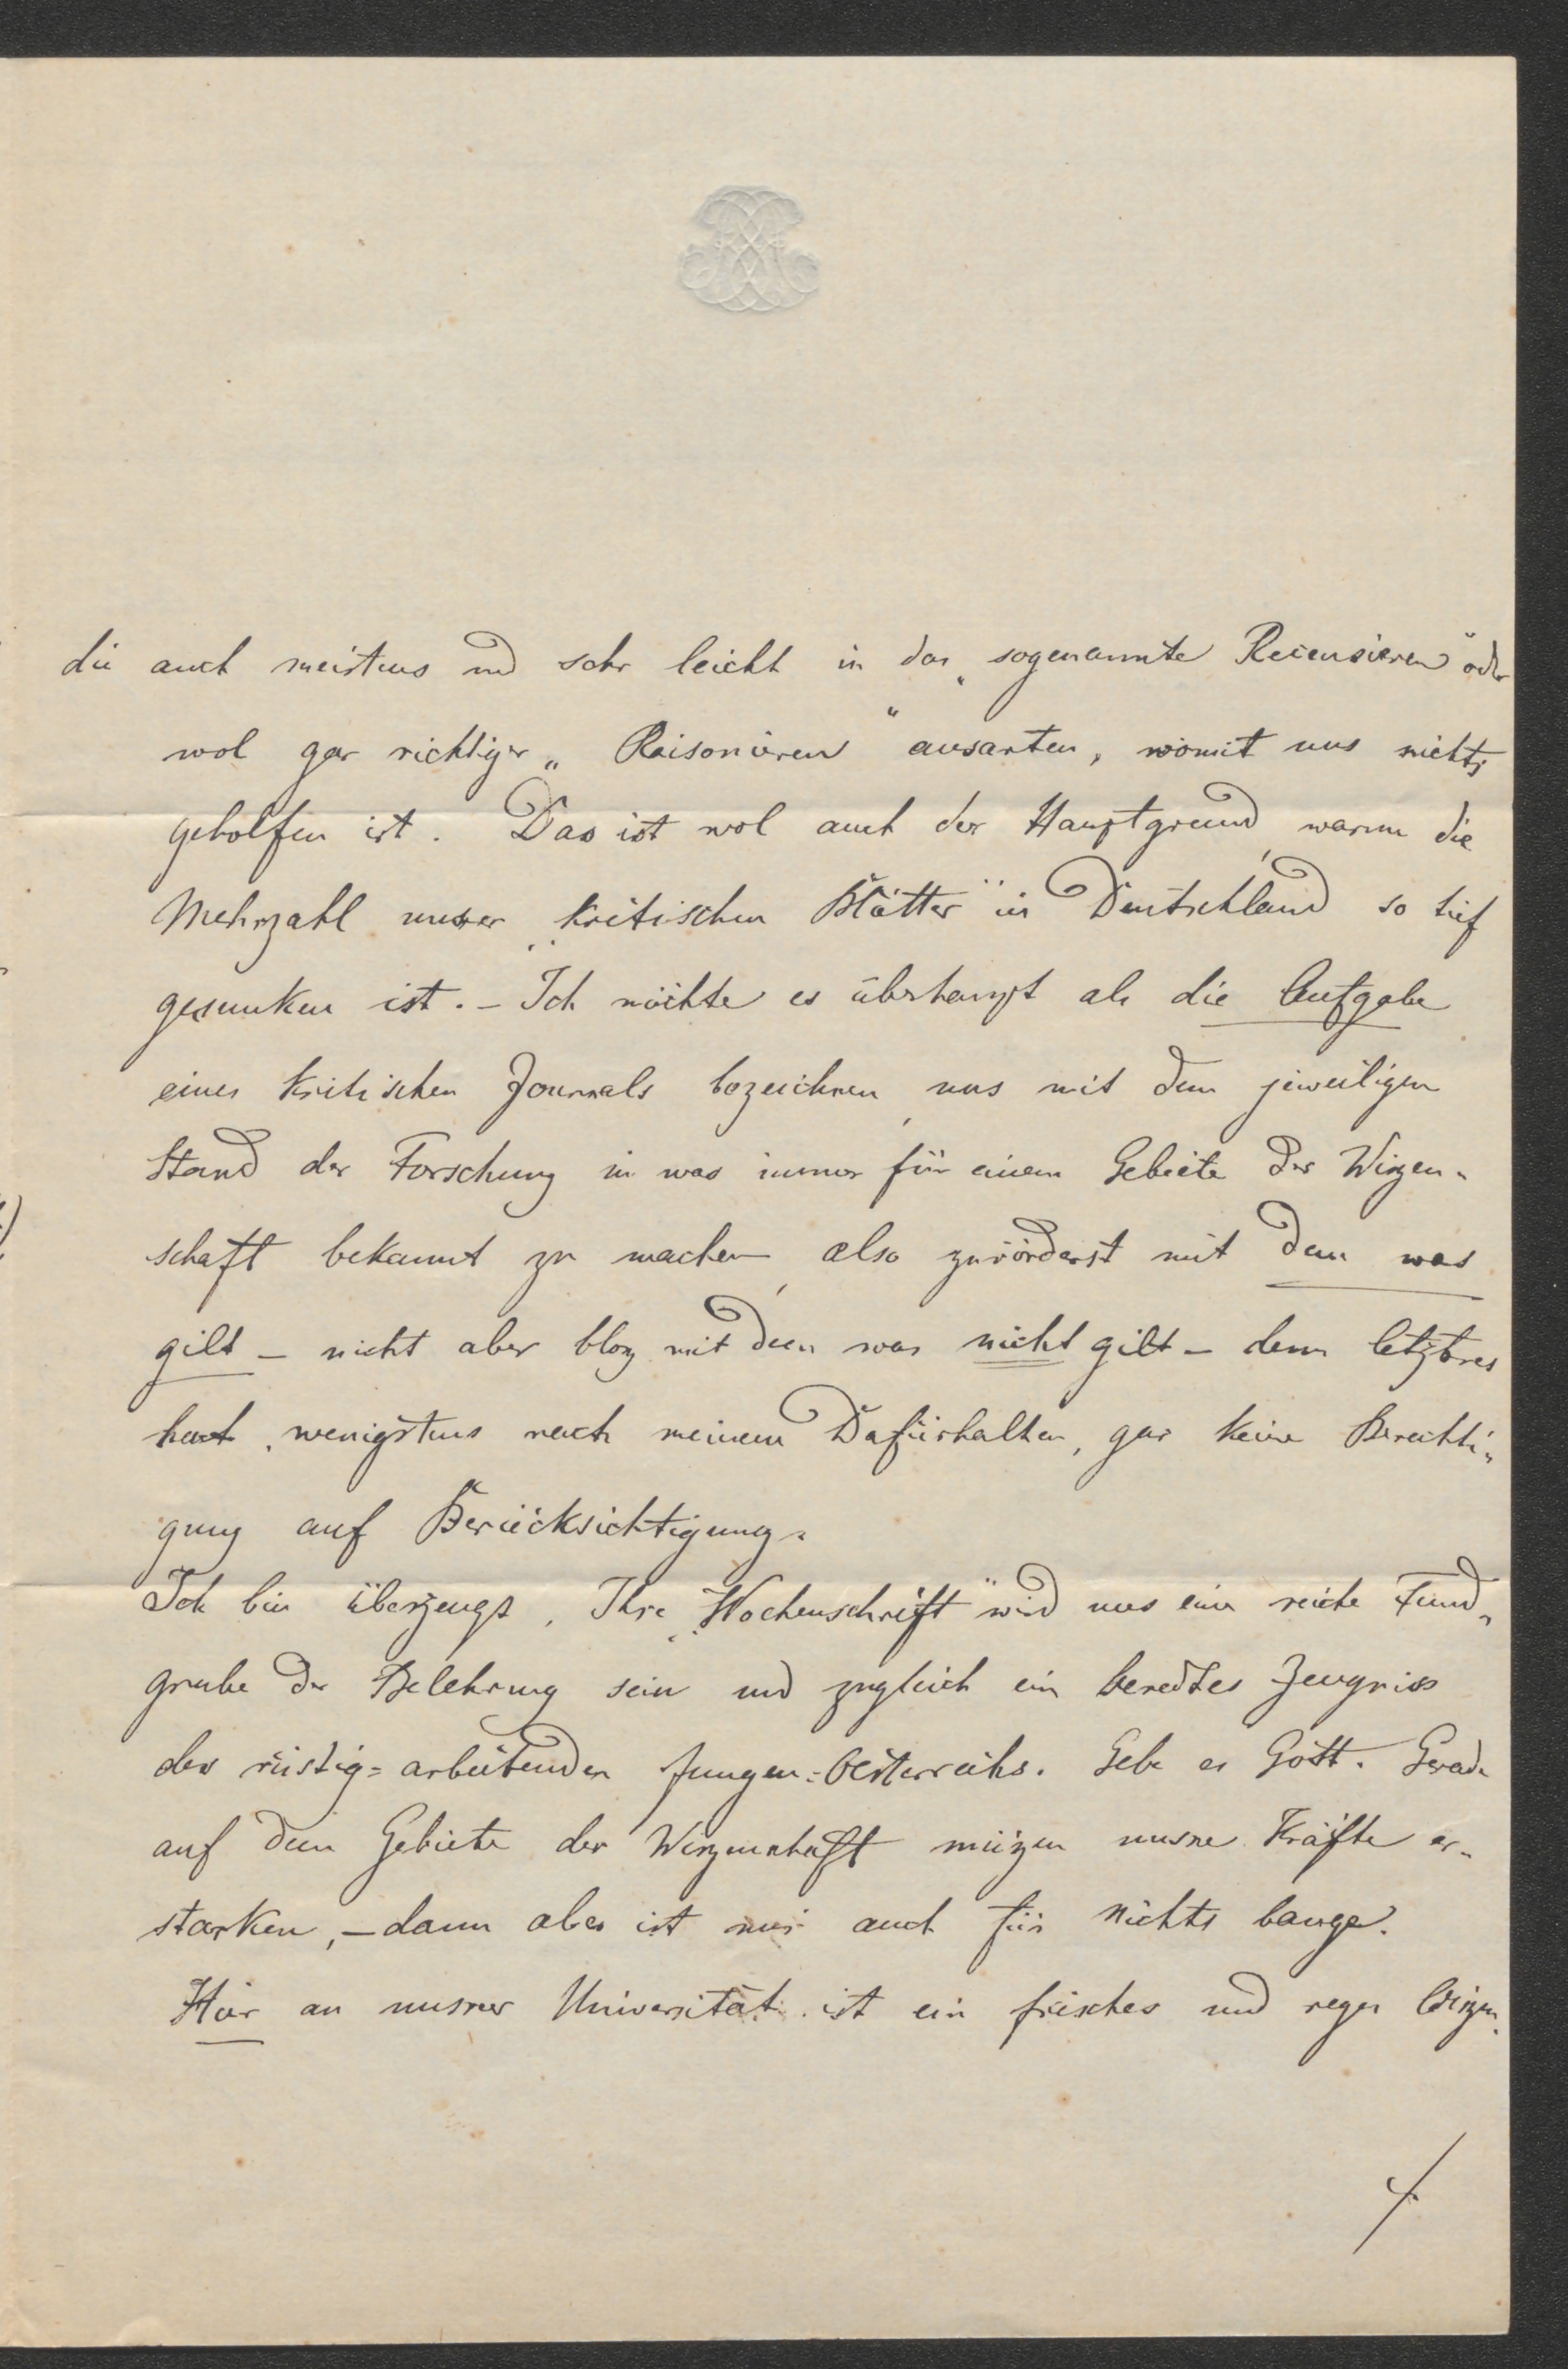 die auch meistens und sehr leicht in das „sogenannte Recensieren“ oder
wol gar richtiger „Raisonieren“ ausarten, womit uns nichts
geholfen ist. Das ist wol auch der Hauptgrund, warum die
Mehrzahl unserer „kritischen Blätter“ in Deutschland so tief
gesunken ist. – Ich möchte es überhaupt als die Aufgabe
eines kritischen Journals bezeichnen, uns mit dem jeweiligen
Stand der Forschung in was immer für einem Gebiete der Wißen-
schaft bekannt zu machen, also zuvörderst mit dem was
gilt – nicht aber bloß mit dem was nicht gilt – denn letzteres
hat, wenigstens nach meinem Dafürhalten, gar keine Berechti-
gung auf Berücksichtigung.
Ich bin überzeugt, Ihre „Wochenschrift“ wird uns eine reiche Fund-
grube der Belehrung sein und zugleich ein beredtes Zeugniss
des rüstig=arbeitenden Jungen=Oesterreichs. Gebe es Gott. Gerade
auf dem Gebiete der Wißenschaft müßen unsre Kräfte er-
starken, – dann aber ist mir auch für nichts bange.
Hier an unsrer Universität ist ein frisches und reges Wißen-